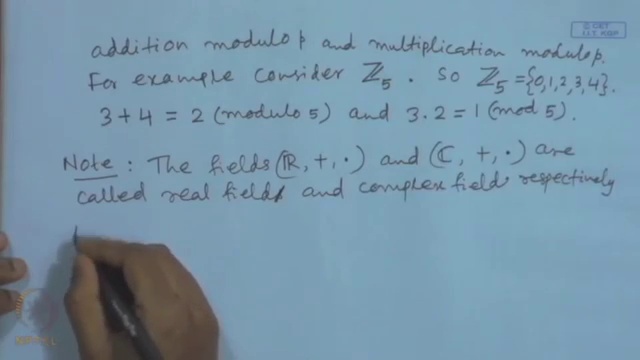 © CET
I.I.T. KGP
addition modulo p and multiplication modulo p.
For example consider ℤ₅. So ℤ₅ = {0,1,2,3,4}.
3+4 = 2 (modulo 5) and 3.2 = 1 (mod 5).
Note: The fields (ℝ, +, ·) and (ℂ, +, ·) are
called real field and complex field respectively
NPTEL